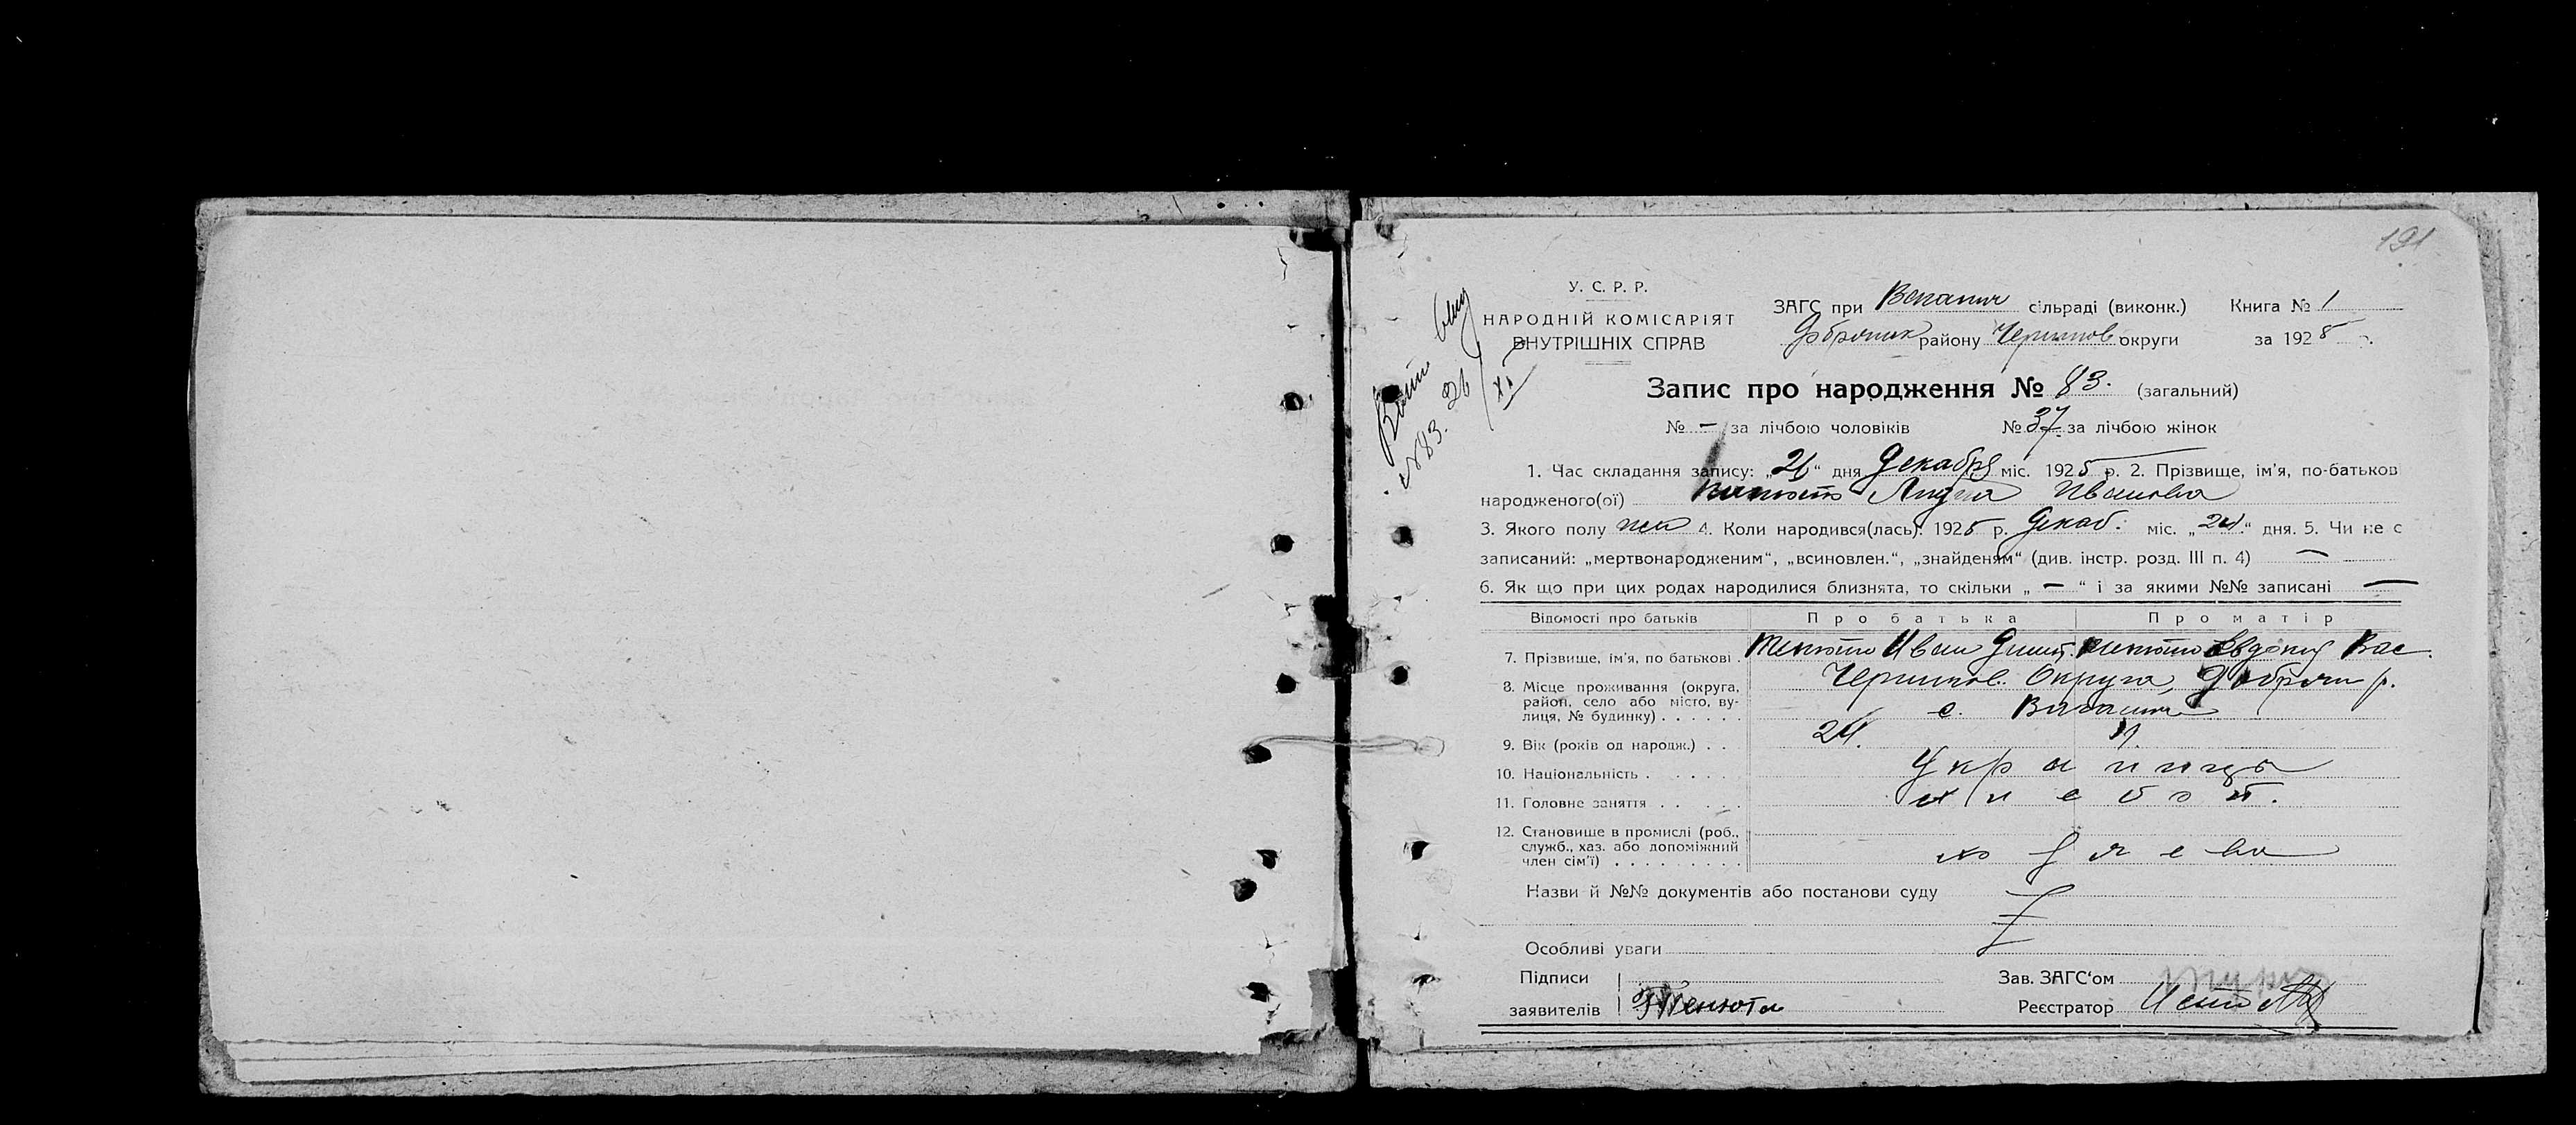 191
У. С. Р. Р.
НАРОДНІЙ КОМІСАРІЯТ
ВНУТРІШНІХ СПРАВ
ЗАГС при сільраді (виконк.) Книга № 1
району Чернигов округи за 1925 р.
№ 83. 26/XII
Запис про народження № 83. (загальний)
№ — за лічбою чоловіків № 37 за лічбою жінок
1. Час складання запису: „26“ дня Декабря міс. 1925 р. 2. Прізвище, ім'я, по-батьков
народженого(ої) Ивановна
3. Якого полу жен 4. Коли народився(лась): 1925 р. Декаб. міс. „24“ дня. 5. Чи не є
записаний: „мертвонародженим“, „всиновлен.“, „знайденям“ (див. інстр. розд. III п. 4) —
6. Як що при цих родах народилися близнята, то скільки „—“ і за якими №№ записані —
Відомості про батьків Про батька Про матір
7. Прізвище, ім'я, по батькові . Тенюта Иван Дмит. Тенюта Евдокия Вас.
8. Місце проживання (округа, район, село або місто, вулиця, № будинку) . . . . . . Чернигов. Округа, Добрян р.
с.
9. Вік (років од народж.) . . 24.
10. Національність . . . . . Украинцы
11. Головне заняття . . . . . хлебоп.
12. Становище в промислі (роб., служб., хаз. або допоміжний член сім'ї) . . . . . . . . . хозяева
Назви й №№ документів або постанови суду
Особливі уваги
Підписи Зав. ЗАГС'ом
заявителів Тенюта Реєстратор